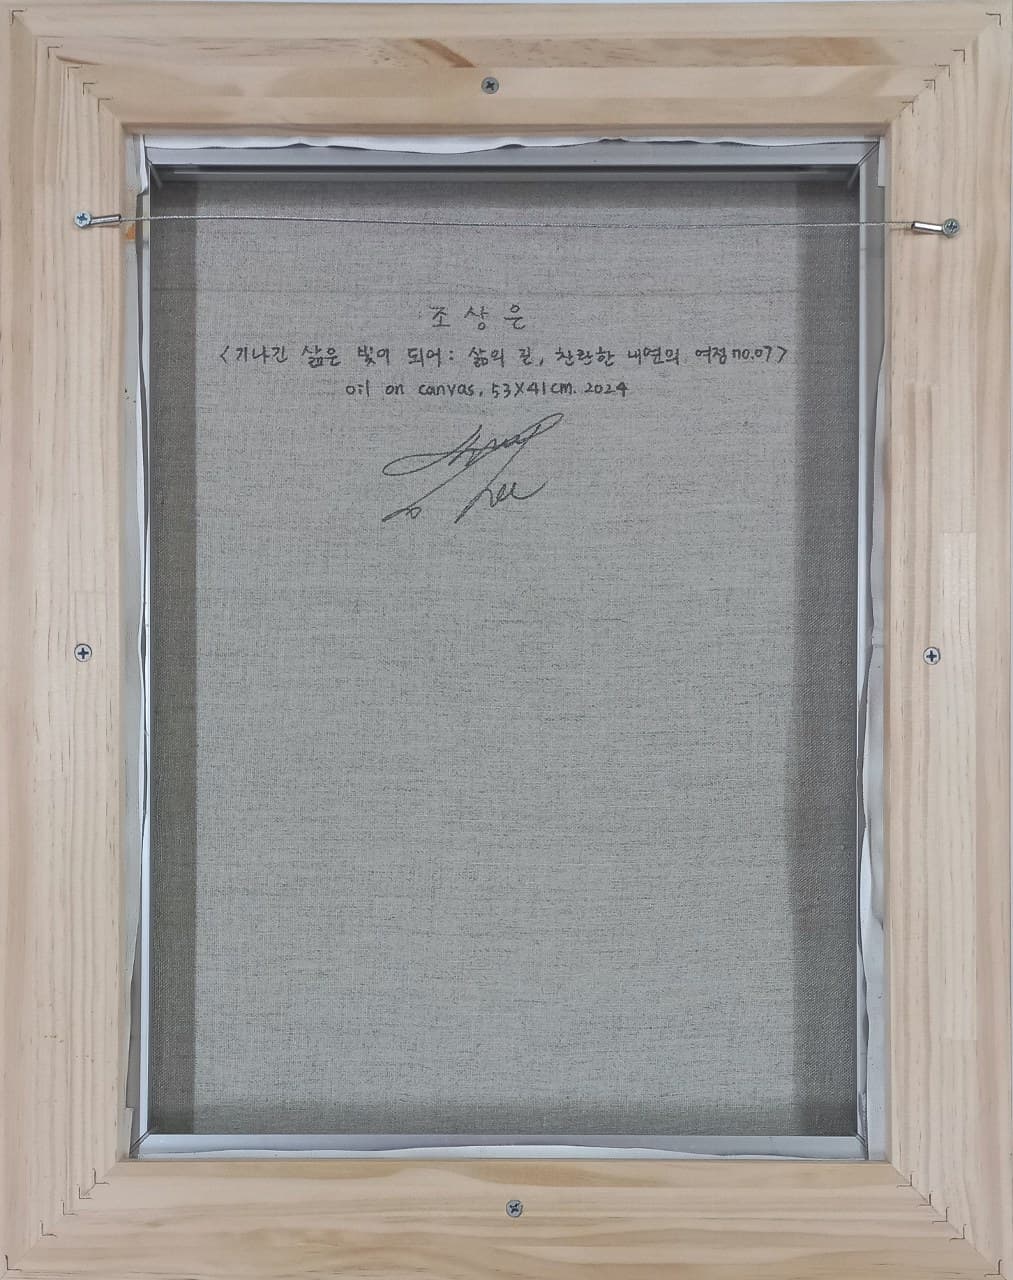 조상은
<기나긴 삶은 빛이 되어: 삶의 길, 찬란한 내면의 여정 no.07>
oil on canvas, 53X41cm. 2024